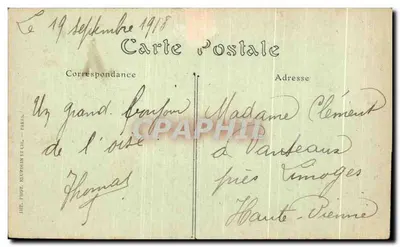 Le 19 septembre 1918
Carte Postale
Correspondance
Adresse
Un grand bonjour
de l'oise
Thomas
Madame Clément
à Vanteaux
près Limoges
Haute-Vienne
CPAPHIL